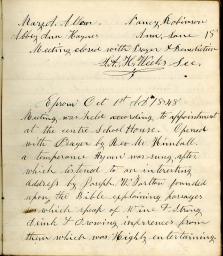 Mary J. Allen Nancy Robinson
Abbey Ann Haynes Ann, Lane 18
Meeting closed with Prayer & Benediction
H. Weeks Sec.
Epsom Oct 1st 1848
Meeting was held according to appointment
at the centre School House. Opened
with Prayer by Rev. Mr Kimball.
a temperance Hymn was sung, after
which listened to an interesting
address by Joseph W. Parlton founded
upon the Bible explaining passages
which speak of Wine & Strong
drink & drawing inferences from
them which was Highly entertaining.